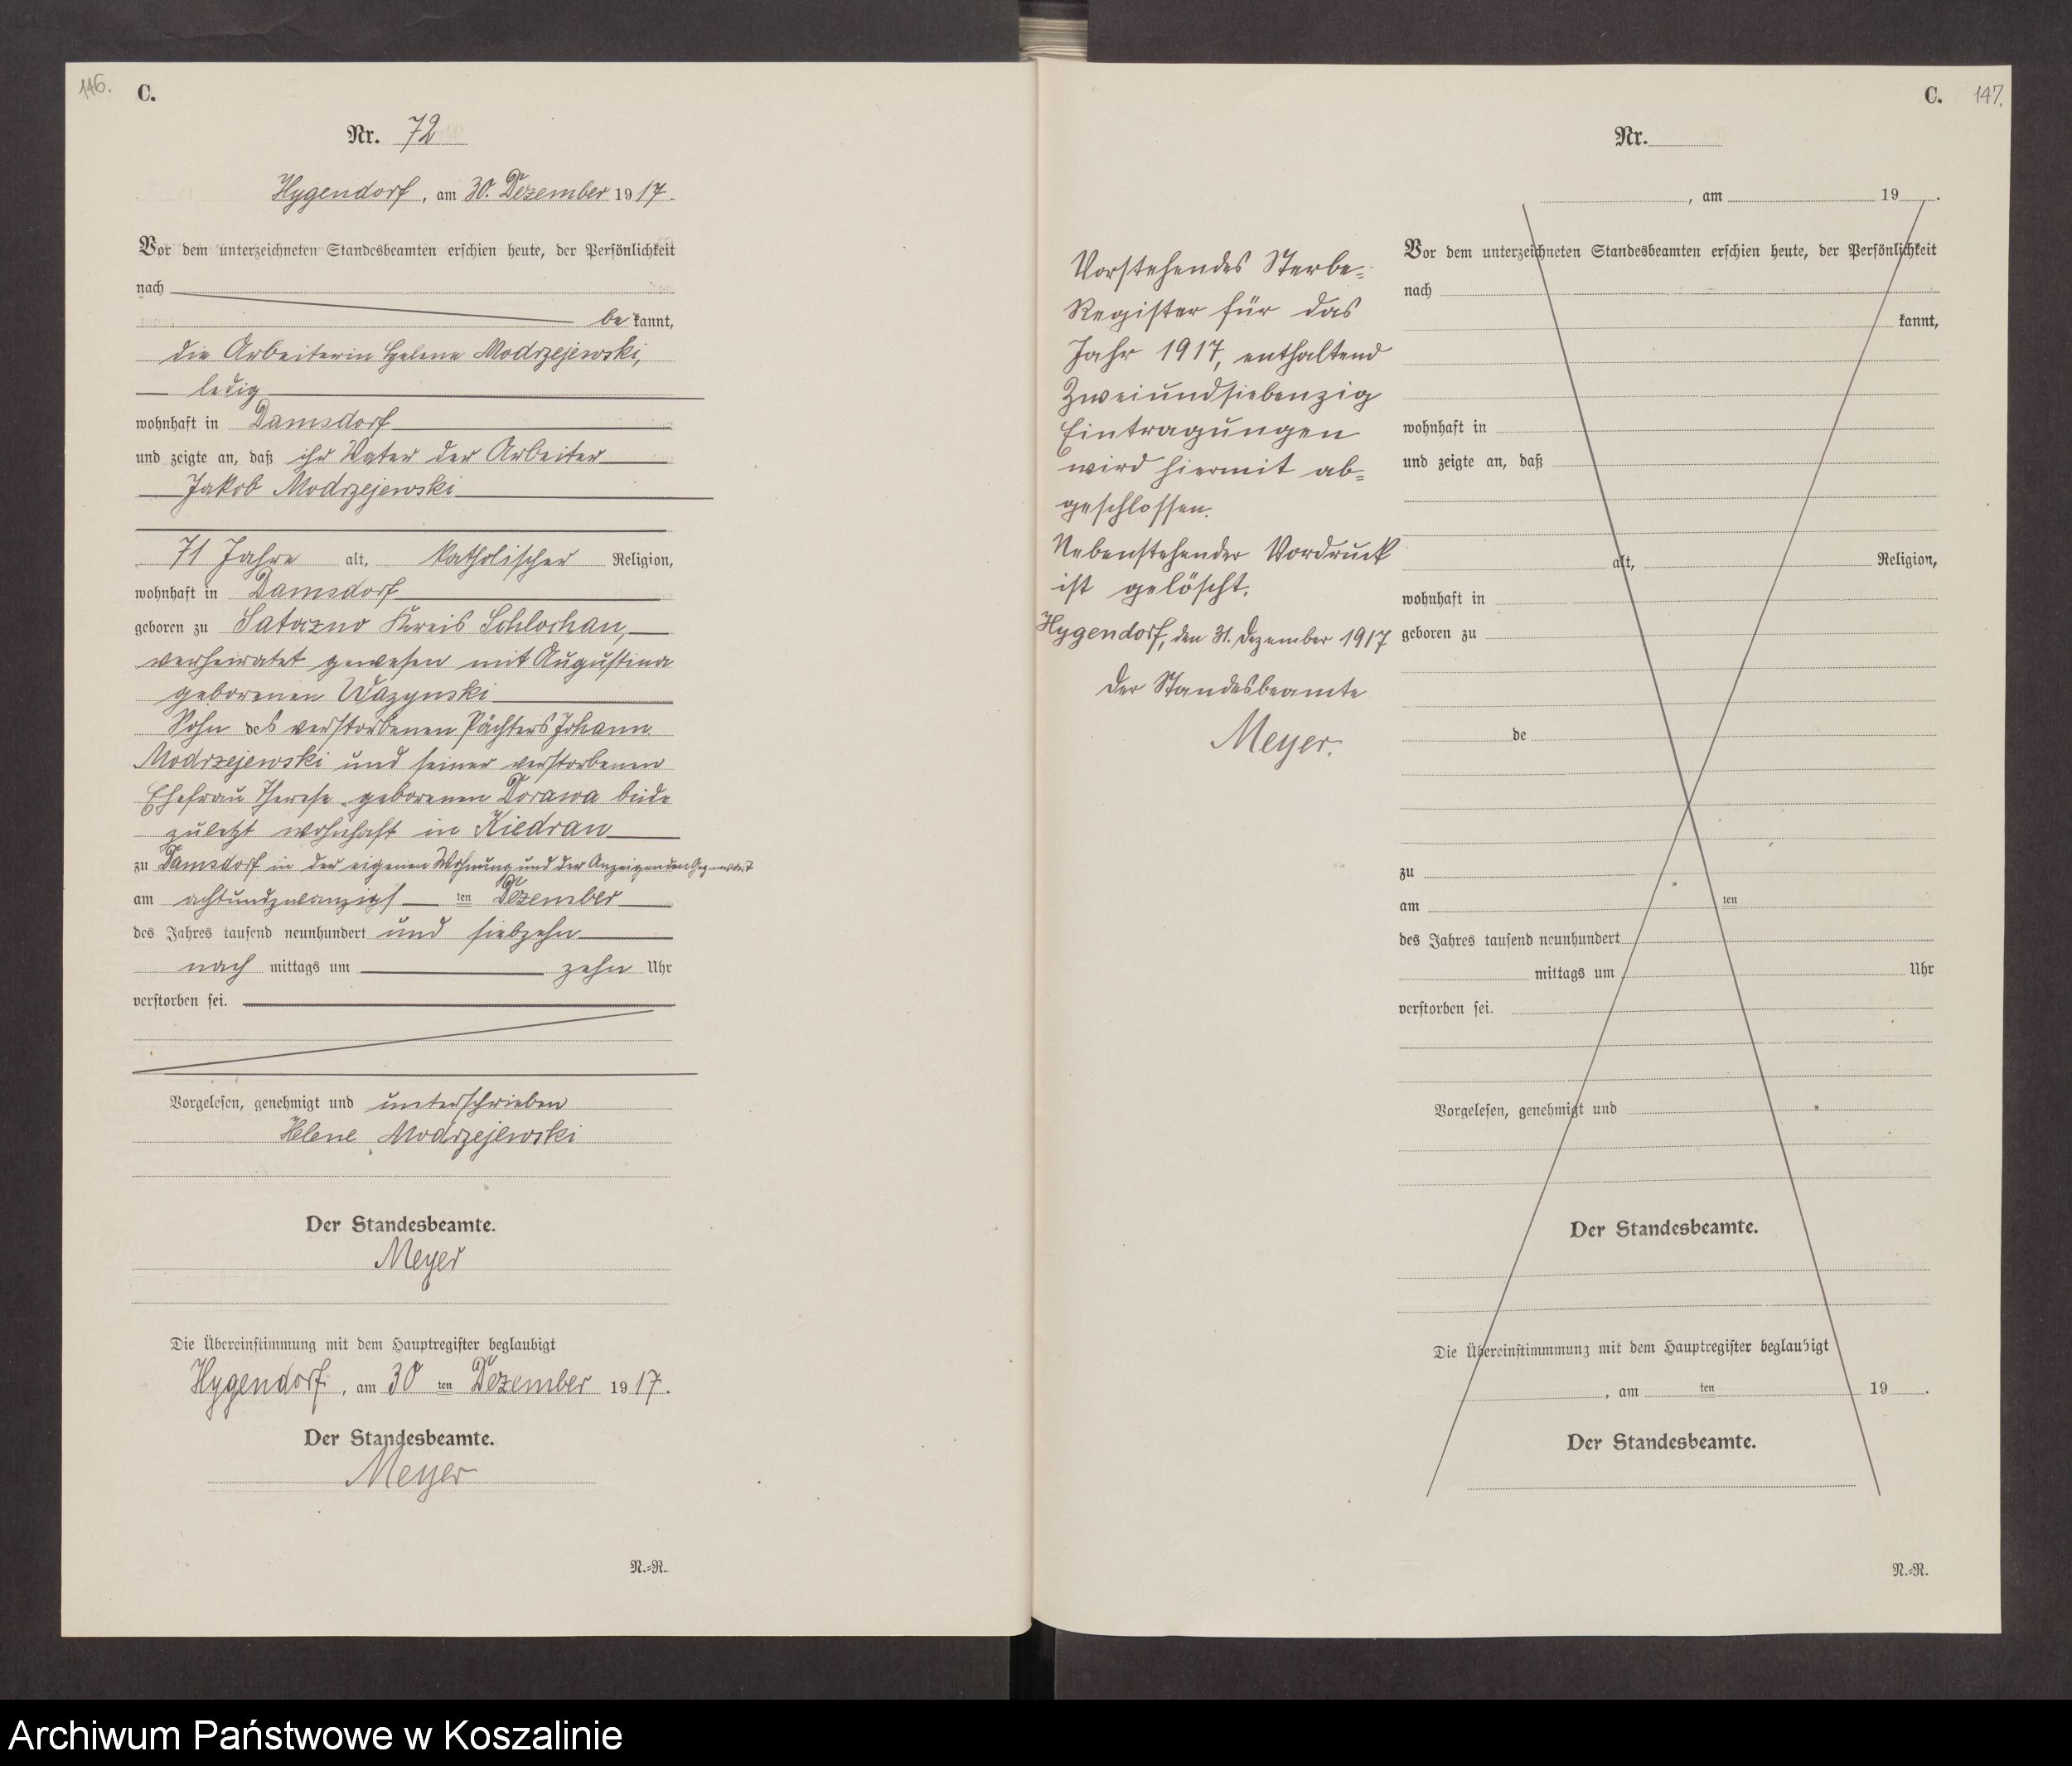 146.
C.
Nr. 72
Hygendorf, am 30. Dezember 1917.
Vor dem unterzeichneten Standesbeamten erschien heute, der Persönlichkeit
nach
bekannt,
die Arbeiterin Helene Modrzejewski,
ledig
wohnhaft in Damsdorf
und zeigte an, daß ihr Vater der Arbeiter
Jakob Modrzejewski
71 Jahre alt, katholischer Religion,
wohnhaft in Damsdorf
geboren zu Kreis Schlochau,
verheiratet gewesen mit Augustina
geborenen Wazynski
Sohn des verstorbenen Pächters Johann
Modrzejewski und seiner verstorbenen
Ehefrau Therese geborenen Dorawa beide
zuletzt wohnhaft in Kiedrau
zu Damsdorf in der eigenen Wohnung und der Anzeigenden Gegenwart
am achtundzwanzigsten Dezember
des Jahres tausend neunhundert und siebzehn
nach mittags um zehn Uhr
verstorben sei.
Vorgelesen, genehmigt und unterschrieben
Helene Modrzejewski
Der Standesbeamte.
Meyer
Die Übereinstimmung mit dem Hauptregister beglaubigt
Hygendorf, am 30ten Dezember 1917.
Der Standesbeamte.
Meyer
N.=R.
C. 147.
Vorstehendes Sterbe=
Register für das
Jahr 1917, enthaltend
Zweiundsiebenzig
Eintragungen
wird hiermit ab=
geschlossen.
Nebenstehender Vordruck
ist gelöscht.
Hygendorf, den 31. Dezember 1917
Der Standesbeamte
Meyer.
Nr.
, am 19 .
Vor dem unterzeichneten Standesbeamten erschien heute, der Persönlichkeit
nach
kannt,
wohnhaft in
und zeigte an, daß
alt, Religion,
wohnhaft in
geboren zu
de
zu
am ten
des Jahres tausend neunhundert
mittags um Uhr
verstorben sei.
Vorgelesen, genehmigt und
Der Standesbeamte.
Die Übereinstimmmung mit dem Hauptregister beglaubigt
, am ten 19 .
Der Standesbeamte.
N.=R.
Archiwum Państwowe w Koszalinie